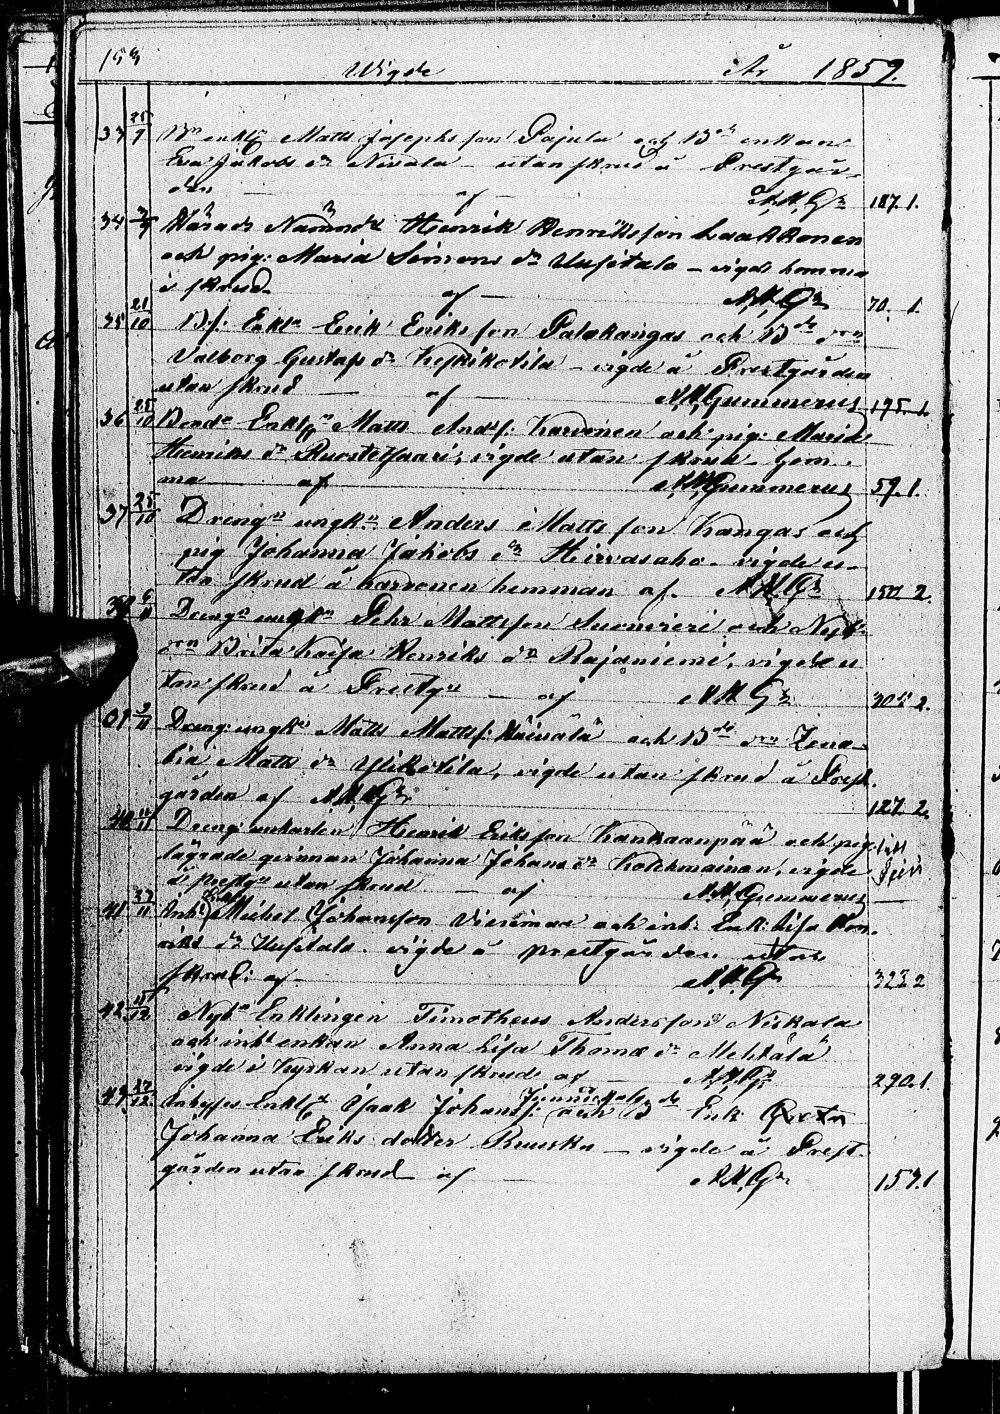 153 Wigde År 1859.
33 25/9 Bn enkln Matts Josephsson Pajula och Bde enkan
Eva Jakobs dr Nivala utan skrud å Prestgår-
den — af — N.N.Gr 187.1.
34 Härads Nämnd Henrik Henriksson Laakkonen
och pig: Maria Simons dr Uusitalo – vigde hemma
i skrud. af — N.N.Gr 70. 1.
35 21/10 Bs: Enkln Erik Eriksson Palokangas och Bde drn
Valborg Gustafs dr Keskikotila – vigde å Prestgården
utan skrud — af — N.N.Gummerus 175.1.
36 25/10 Bonde Enkln Matts Ands: Karvonen och pig: Maria
Henriks dr Ruostetsaari, vigde utan skrud hem-
ma af N.N.Gummerus 59.1.
37 25/10 Drengn ungkn Anders Matts son Kangas och
pig Johanna Jakobs dr Hirvasaho – vigde u-
tan skrud å Karvonen hemman af. N.N.Gr 150 2.
38 6/11 Drengn ungkn Pehr Mattsson Suomieri och Nyb:
drn Brita Kaisa Henriks dr Rajaniemi, vigde u
tan skrud å Prestgn — af N.N.Gr 305 2.
39 9/11 Dreng: ungkn Matts Matts: och Bde drn Zeno-
bia Matts dr Ylikotila, vigde utan skrud å Prest-
gården af N.N.Gr 127 2.
40 Dreng: unkarlen Henrik Eriksson Kankaanpää och pig:
lägrade qvinnan Johanna Johans dr Kolehmainen, vigde
å prestgn utan skrud — af N.N.Gummerus
41 27/11 Inh: Enkl Michel Johansson Vierimaa och inh: Enk: Lisa Hen-
riks dr Uusitalo. vigde å prestgården utan
skrud: af – N.N.Gr 323 2
42 11/12 Nybn Enklingen Timotheus Andersson Niskala
och inhs enkan Anna Lisa Thomæ dr Mehtälä
vigde i Kyrkan utan skrud af — N.N.Gr 290.1.
43 27/12 Inhyses Enkln Isaak Johanss: och Bde Enk: Greta
Johanna Eriks dotter Ruuska – vigde å Prest-
gården utan skrud af — N.N.Gr 157.1